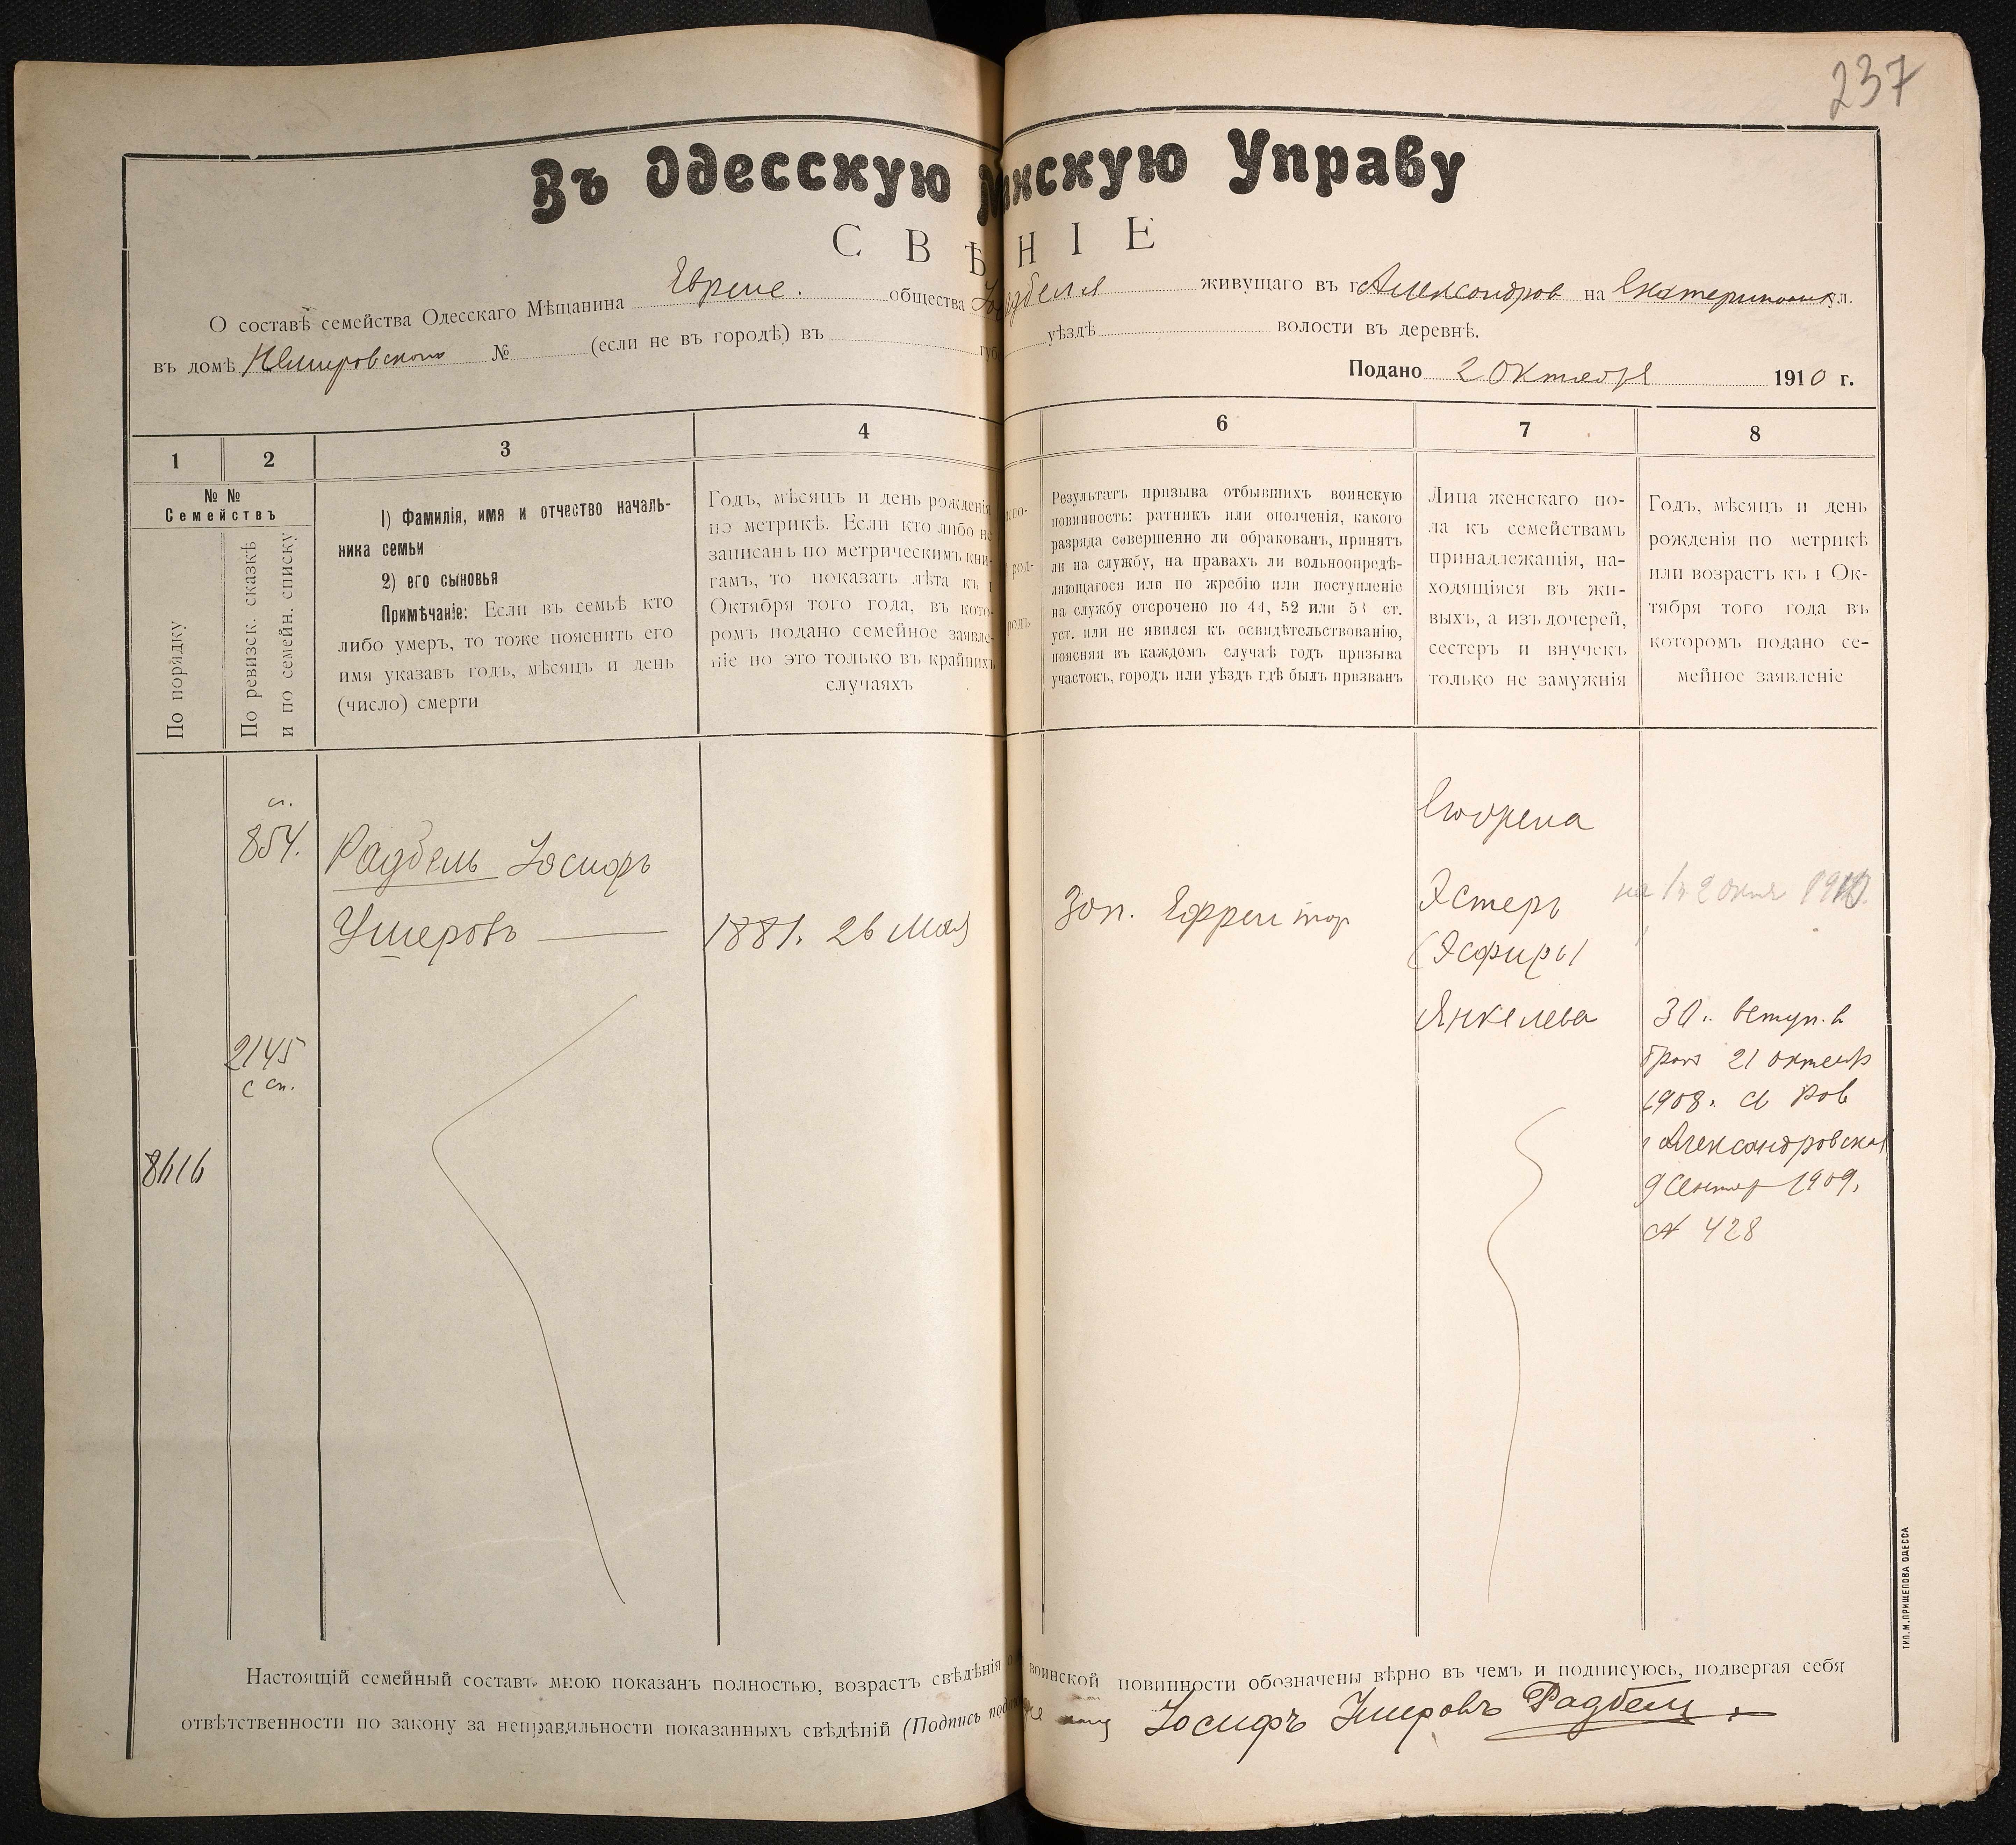 237
Въ Одесскую М нскую Управу
СВѢ НІЕ
О составѣ семейства Одесскаго Мѣщанина Еврейс. общества Радбеля живущаго въ г. Александров на ул.
въ домѣ Немировскаго № (если не въ городѣ) въ губ уѣздѣ волости въ деревнѣ.
Подано 2 Октября 1910 г.
1 2 3 4 6 7 8
№ №
Семействъ
По порядку
По ревизск. сказкѣ
и по семейн. списку
1) Фамилія, имя и отчество началь-
ника семьи
2) его сыновья
Примѣчаніе: Если въ семьѣ кто
либо умеръ, то тоже пояснить его
имя указавъ годъ, мѣсяцъ и день
(число) смерти
Годъ, мѣсяцъ и день рожденія
по метрикѣ. Если кто либо не
записанъ по метрическимъ кни-
гамъ, то показать лѣта къ 1
Октября того года, въ кото-
ромъ подано семейное заявле-
ніе но это только въ крайнихъ
случаяхъ
Результатъ призыва отбывшихъ воинскую
повинность: ратникъ или ополченія, какого
разряда совершенно ли обракованъ, принятъ
ли на службу, на правахъ ли вольноопредѣ-
ляющагося или по жребію или поступленіе
на службу отсрочено по 44, 52 или 53 ст.
уст. или не явился къ освидѣтельствованію,
поясняя въ каждомъ случаѣ годъ призыва
участокъ, городъ или уѣздъ гдѣ былъ призванъ
Лица женскаго по-
ла къ семействамъ
принадлежащія, на-
ходящіяся въ жи-
выхъ, а изъ дочерей,
сестеръ и внучекъ
только не замужнія
Годъ, мѣсяцъ и день
рожденія по метрикѣ
или возрастъ къ 1 Ок-
тября того года въ
которомъ подано се-
мейное заявленіе
с.
854.
Радбель Іосифъ
Умеровъ
1881. 26 Мая
Зап. Ефрейтор
Эстеръ
(Эсфирь)
Янкелева
на 2 1910.
30. вступ. в
брак 21 октяб
1908. Рав
г Александровска
9 Сентяб 1909.
№ 428
2145
с сп.
8616
Настоящій семейный составъ мною показанъ полностью, возрастъ свѣдѣнія о воинской повинности обозначены вѣрно въ чемъ и подписуюсь, подвергая себя
отвѣтственности по закону за неправильности показанныхъ свѣдѣній (Подпись Іосифъ Умеровъ Радбель.
ТИП. М. ПРИЩЕПОВА ОДЕССА